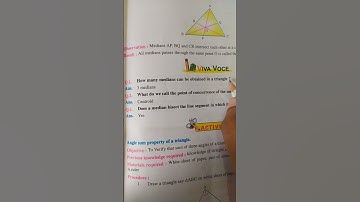 Observation : Medians AP, BQ and CR intersect each other at
Result : All medians passes through the same point G is called
VIVA VOCE
Q.1. How many medians can be obtained in a triangle ?
Ans. 3 medians
Q.2. What do we call the point of concurrence of the
Ans. Centroid
Q.3. Does a median bisect the line segment to which
Ans. Yes
ACTIV
Angle sum property of a triangle.
Objective : To Verify that sum of three angles of a
Previous knowledge required : Knowledge of triangle,
Materials required : White sheet of paper, pair of
A ruler
Procedure :
1. Draw a triangle say ΔABC on white sheet of